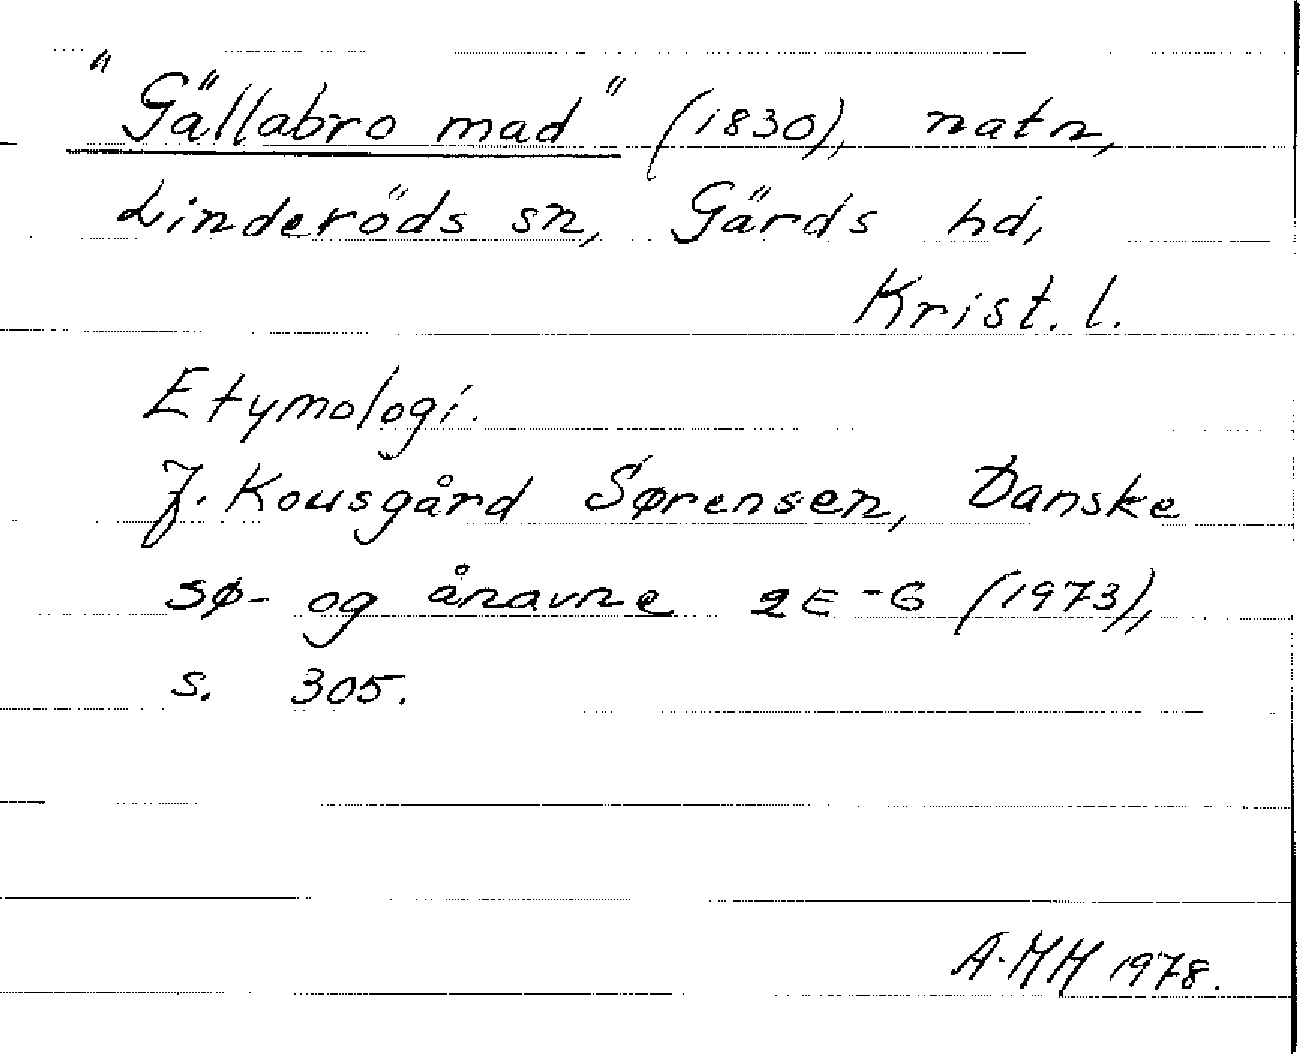 "Gällabro mad" (1830), natn,
Linderöds sn, Gärds hd,
Krist. l.
Etymologi.
J. Kousgård Sørensen, Danske
sø- og ånavne 2E-G (1973),
s. 305.
A-MH 1978.